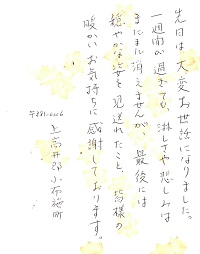 先日は大変お世話になりました。
一週間が過ぎても、淋しさや悲しみは
まだまだ消えませんが、最後には
穏やかな姿を見送れたこと、皆様の
暖かいお気持ちに感謝しております。
〒381-0206
上高井郡小布施町